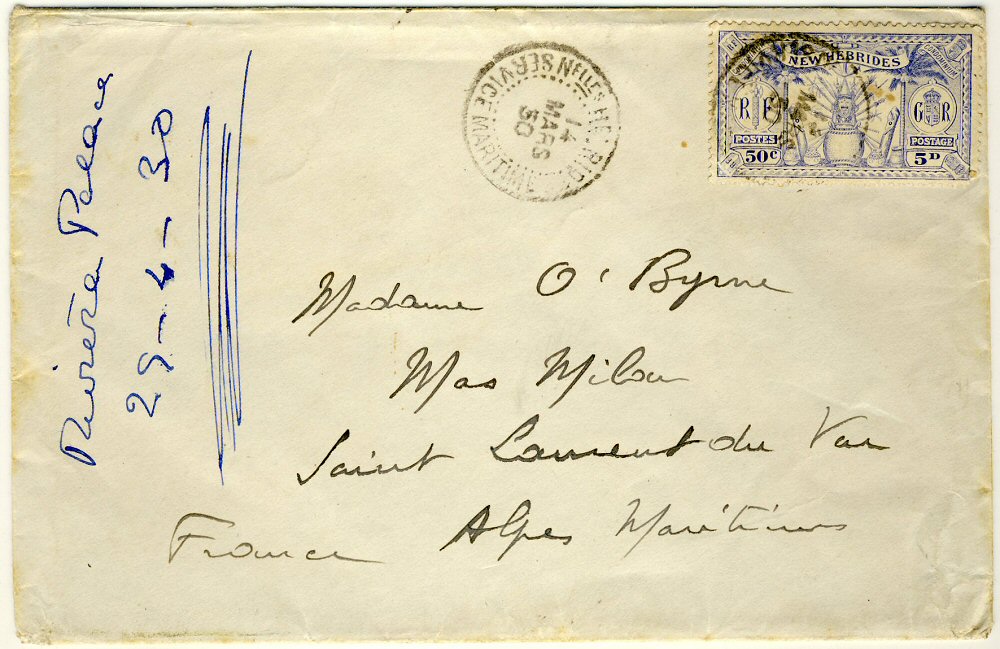 NEW HEBRIDES
R F
G R
POSTES
POSTAGE
50c
5D
NLLES HEBRIDES
14
MARS
30
SERVICE MARITIME
Madame O'Byrne
Mas Milou
Saint Laurent du Var
Alpes Maritimes
France
Riviera Palace
29-4-30